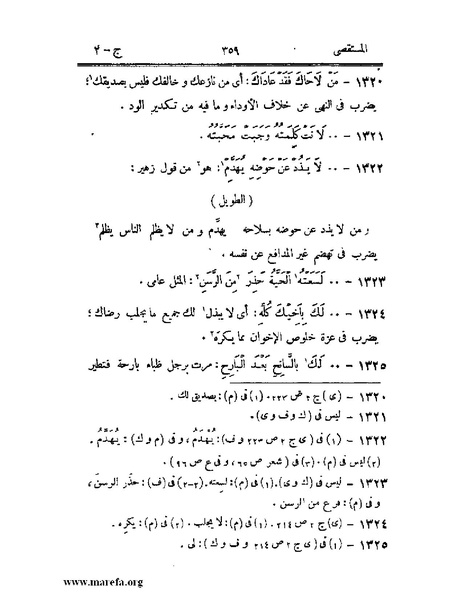 المستقصى ٣٥٩ ج - ٢
١٣٢٠ - مَنْ لَاحَاكَ فَقَدْ عَادَاكَ: أى من نازعك و خالفك فليس بصديقك١؛
يضرب فى النهى عن خلاف الاوداء و ما فيه من تكدير الود .
١٣٢١ - ٠٠ لَانَتْ كَلِمَتُهُ وَجَبَتْ مَحَبَّتُهُ .
١٣٢٢ - ٠٠ لَا يَذُدْ عَنْ حَوْضِهِ يُهَدَّمْ١: هو٢ من قول زهير:
( الطويل )
و من لا يذد عن حوضه بسلاحه يهدَّم و من لا يظلم الناس يظلم٣
يضرب فى تهضم غير المدافع عن نفسه .
١٣٢٣ - ٠٠ لَسَعَتْهُ١ الْحَيَّةُ حَذِرَ ٢مِنَ الرَّسَنِ٢: المثل عامى .
١٣٢٤ - ٠٠ لَكَ بِأَخِيكَ كُلِّهِ: أى لا يبذل١ لك جميع ما يجلب رضاك؛
يضرب فى عزة خلوص الإخوان مما يكره٢ .
١٣٢٥ - ٠٠ لَكَ١ بِالسَّانِحِ بَعْدَ الْبَارِحِ: مرت برجل ظباء بارحة فتطير
١٣٢٠ - (ى) ج ٢ ص ٢٢٣ . (١) فى (م): بصديق لك .
١٣٢١ - ليس فى (ك و ف وى) .
١٣٢٢ - (١) فى (ى ج ٢ ص ٢٢٣ و ف): يُهْدَمُ، و فى (م و ك): يُهَدَّمُ .
(٢) ليس فى (م) . (٣) فى ( شعر ص ٦٥، و فى ع ص ٩٦) .
١٣٢٣ - ليس فى (ك وى) . (١) فى (م): لسعته . (٢-٢) فى (ف): حذّر الرسن،
و فى (م): فزع من الرسن .
١٣٢٤ - (ى) ج ٢ ص ٢١٤ . (١) فى (م): لا يجلب . (٢) فى (م): يكره .
١٣٢٥ - (١) فى (ى ج ٢ ص ٢١٤ و ف و ك): لى .
www.marefa.org